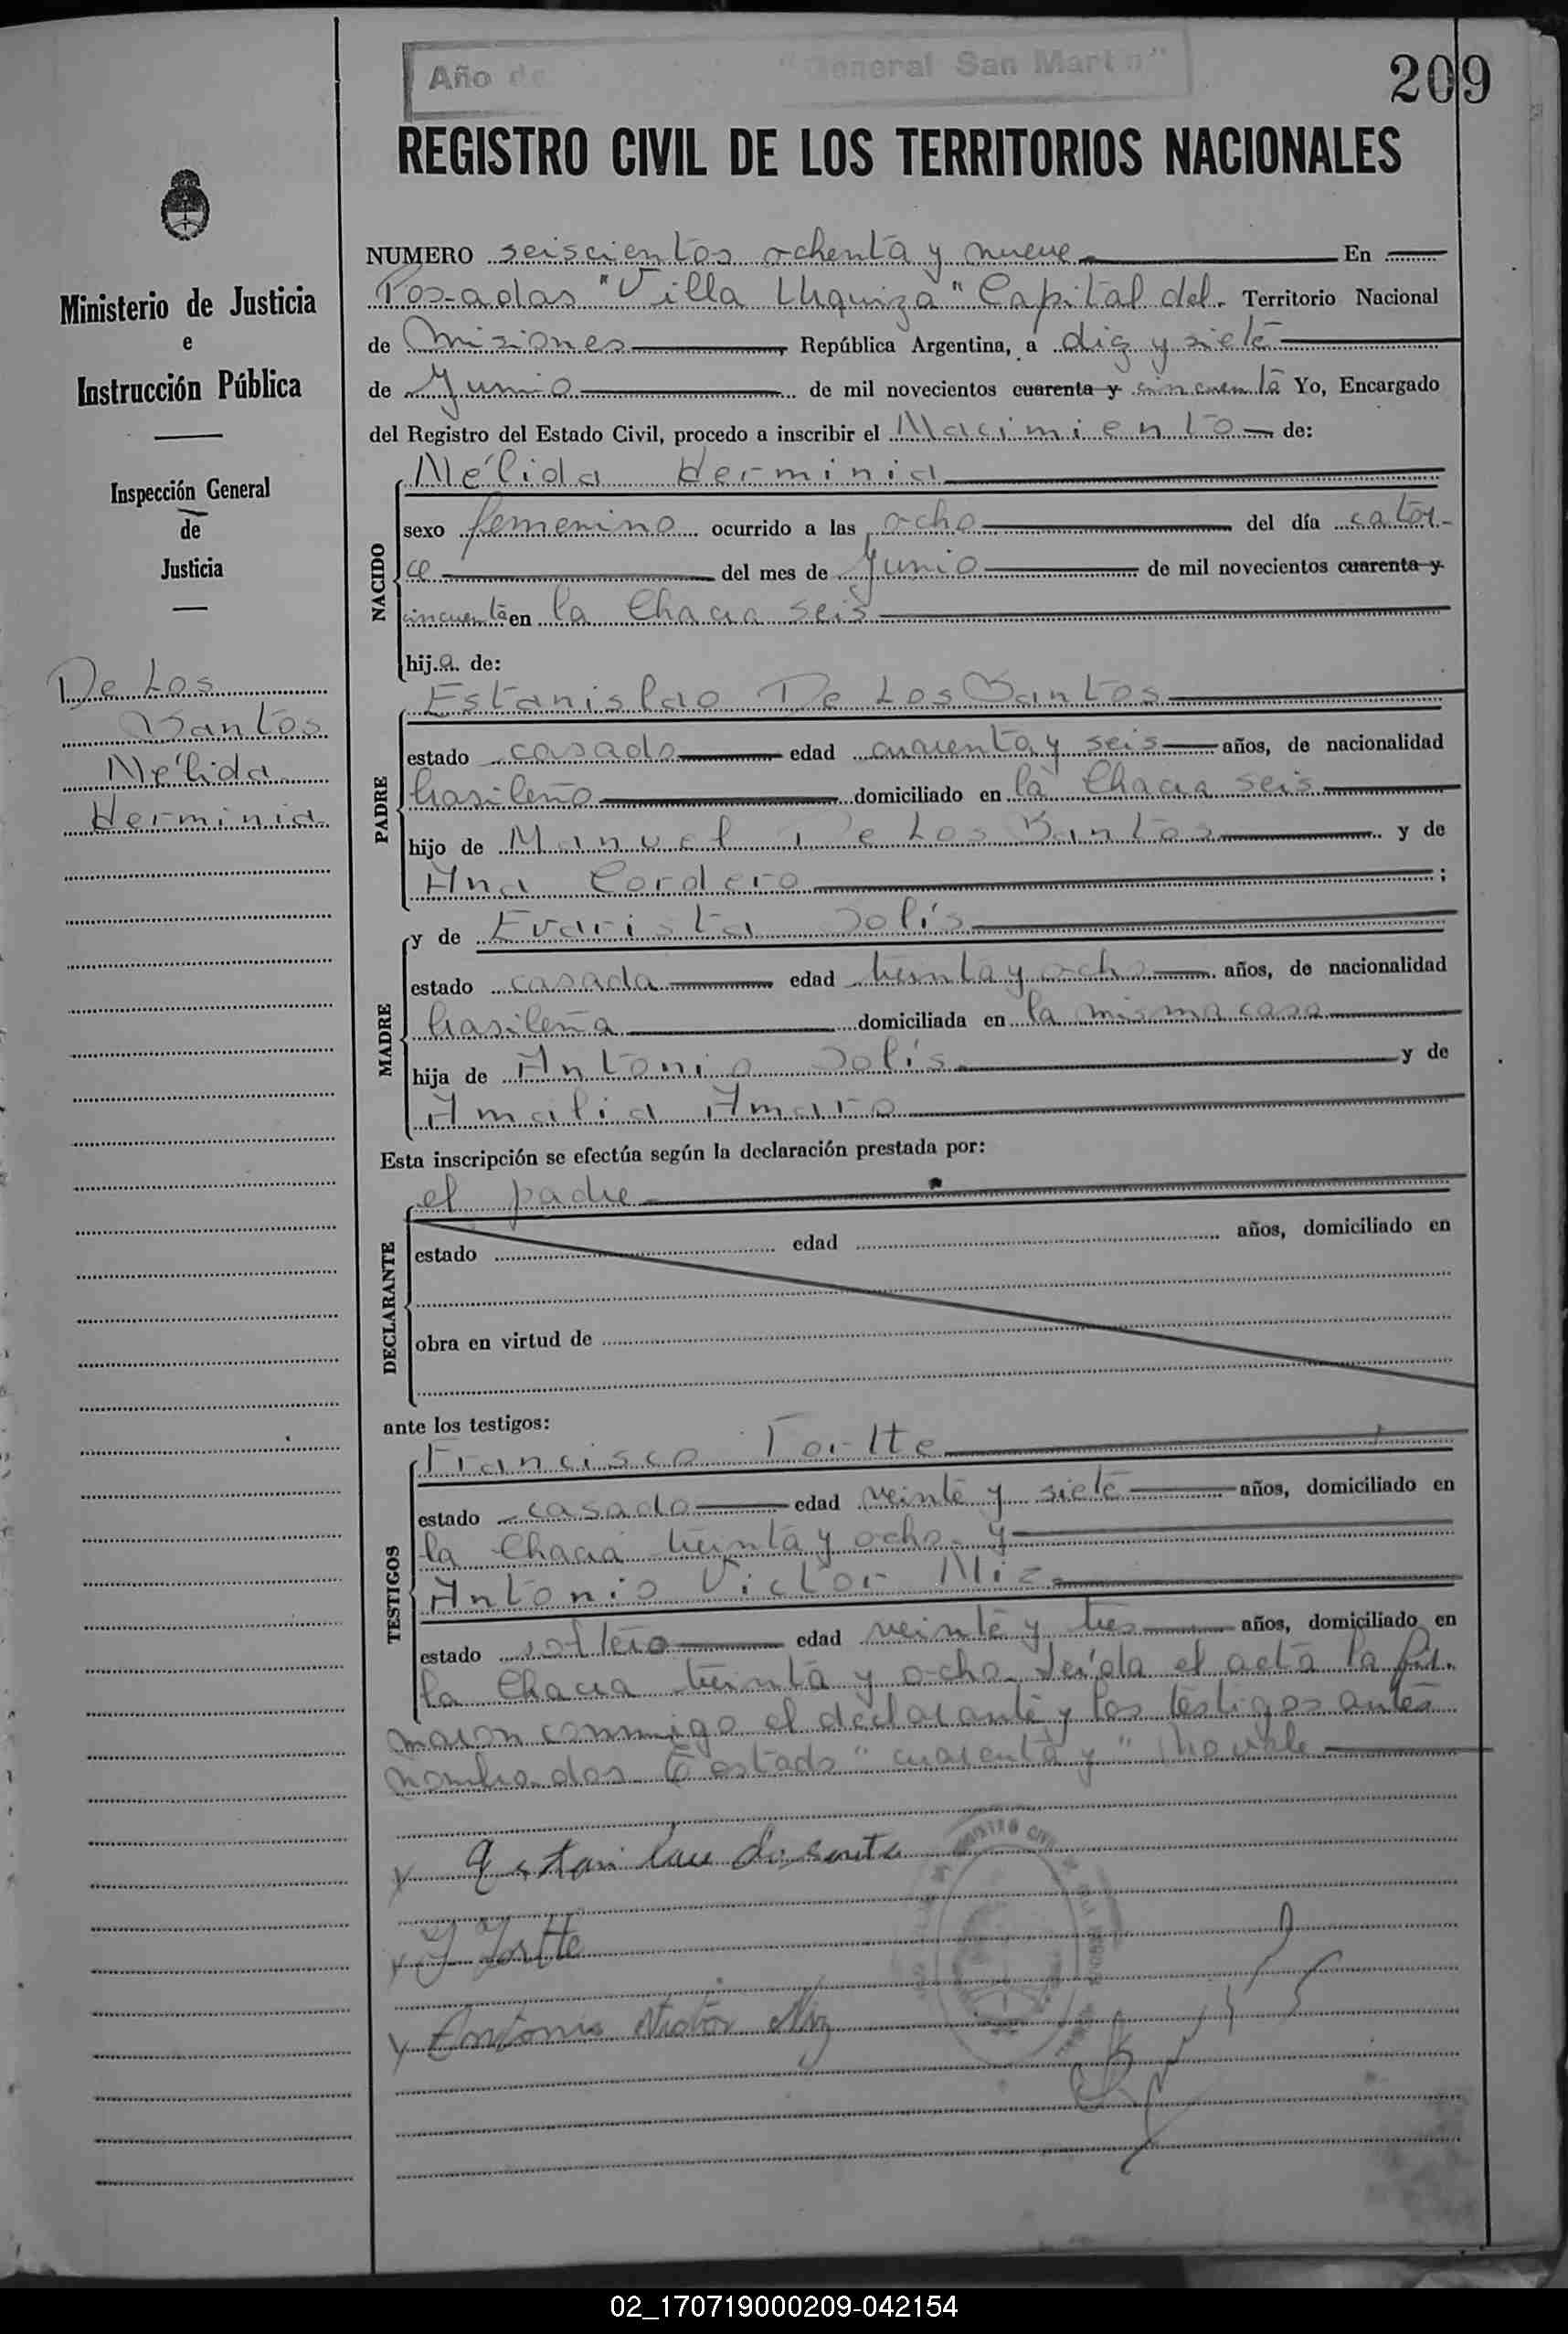 Año de "General San Martín"
209
REGISTRO CIVIL DE LOS TERRITORIOS NACIONALES
Ministerio de Justicia
e
Instrucción Pública
Inspección General
de
Justicia
De Los
Santos
Nélida
Herminia
NUMERO seiscientos ochenta y nueve En
Posadas "Villa Urquiza" Capital del Territorio Nacional
de Misiones República Argentina, a diez y siete
de Junio de mil novecientos cuarenta y cincuenta Yo, Encargado
del Registro del Estado Civil, procedo a inscribir el Nacimiento de:
NACIDO
Nélida Herminia
sexo femenino ocurrido a las ocho del día cator-
ce del mes de Junio de mil novecientos cuarenta y
cincuenta en la Chacra seis
hija de:
PADRE
Estanislao De Los Santos
estado casado edad cuarenta y seis años, de nacionalidad
brasileño domiciliado en la Chacra seis
hijo de Manuel De Los Santos y de
Ana Cordero ;
MADRE
y de Evarista Solís
estado casada edad treinta y ocho años, de nacionalidad
brasileña domiciliada en la misma casa
hija de Antonio Solís y de
Amalia Amaro
Esta inscripción se efectúa según la declaración prestada por:
DECLARANTE
el padre
estado edad años, domiciliado en
obra en virtud de
ante los testigos:
TESTIGOS
Francisco Tor-Itte
estado casado edad veinte y siete años, domiciliado en
la Chacra treinta y ocho y
Antonio Victor Niz
estado soltero edad veinte y tres años, domiciliado en
la Chacra treinta y ocho. Leída el acta la fir-
maron conmigo el declarante y los testigos antes
nombrados. Testado "cuarenta y" No vale
Antonio Victor Niz
REGISTRO CIVIL
02_170719000209-042154